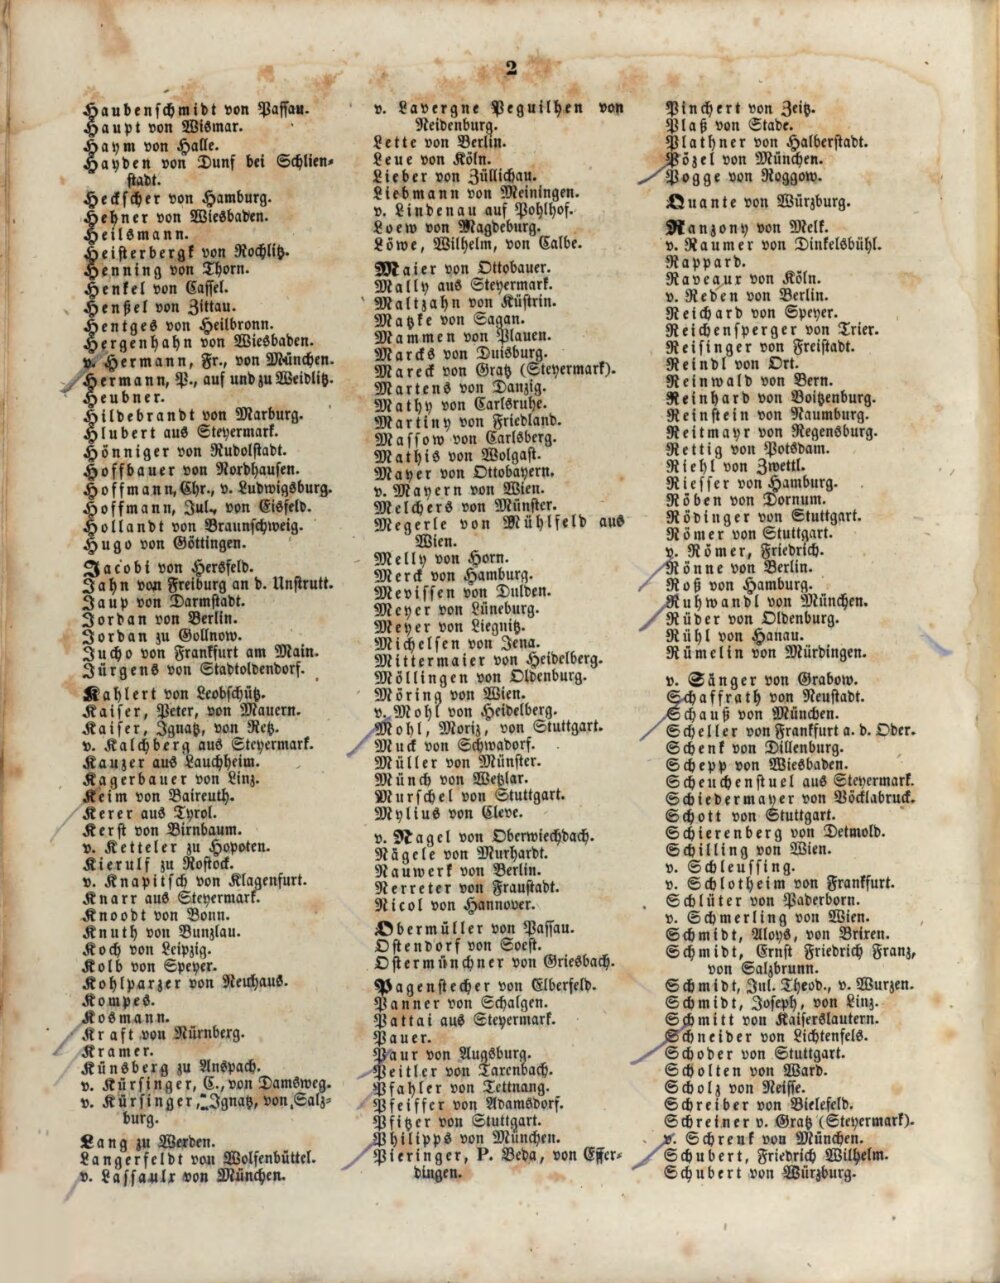 2
Haubenschmidt von Passau.
Haupt von Wismar.
Haym von Halle.
Hayden von Dunf bei Schlien-
stadt.
Heckscher von Hamburg.
Hehner von Wiesbaden.
Heilsmann.
Heisterbergk von Rochlitz.
Henning von Thorn.
Henkel von Cassel.
Henßel von Zittau.
Hentges von Heilbronn.
Hergenhahn von Wiesbaden.
v. Hermann, Fr., von München.
Hermann, P., auf und zu Weidlitz.
Heubner.
Hildebrandt von Marburg.
Hlubert aus Steyermark.
Hönniger von Rudolstadt.
Hoffbauer von Nordhausen.
Hoffmann, Chr., v. Ludwigsburg.
Hoffmann, Jul., von Eisfeld.
Hollandt von Braunschweig.
Hugo von Göttingen.
Jacobi von Hersfeld.
Jahn von Freiburg an d. Unstrutt.
Jaup von Darmstadt.
Jordan von Berlin.
Jordan zu Gollnow.
Jucho von Frankfurt am Main.
Jürgens von Stadtoldendorf.
Kahlert von Leobschütz.
Kaiser, Peter, von Mauern.
Kaiser, Ignatz, von Retz.
v. Kalchberg aus Steyermark.
Kauzer aus Lauchheim.
Kagerbauer von Linz.
Keim von Baireuth.
Kerer aus Tyrol.
Kerst von Birnbaum.
v. Ketteler zu Hopoten.
Kierulf zu Rostock.
v. Knapitsch von Klagenfurt.
Knarr aus Steyermark.
Knoodt von Bonn.
Knuth von Bunzlau.
Koch von Leipzig.
Kolb von Speyer.
Kohlparzer von Neuhaus.
Kompes.
Kosmann.
Kraft von Nürnberg.
Kramer.
Künsberg zu Anspach.
v. Kürsinger, C., von Damsweg.
v. Kürsinger, Ignatz, von Salz-
burg.
Lang zu Werden.
Langerfeldt von Wolfenbüttel.
v. Lassaulx von München.
v. Lavergne Peguilhen von
Neidenburg.
Lette von Berlin.
Leue von Köln.
Lieber von Züllichau.
Liebmann von Meiningen.
v. Lindenau auf Pohlhof.
Loew von Magdeburg.
Löwe, Wilhelm, von Calbe.
Maier von Ottobauer.
Mally aus Steyermark.
Maltzahn von Küstrin.
Matzke von Sagan.
Mammen von Plauen.
Marcks von Duisburg.
Mareck von Gratz (Steyermark).
Martens von Danzig.
Mathy von Carlsruhe.
Martiny von Friedland.
Massow von Carlsberg.
Mathis von Wolgast.
Mayer von Ottobayern.
v. Mayern von Wien.
Melchers von Münster.
Megerle von Mühlfeld aus
Wien.
Melly von Horn.
Merck von Hamburg.
Mevissen von Dulden.
Meyer von Lüneburg.
Meyer von Liegnitz.
Michelsen von Jena.
Mittermaier von Heidelberg.
Möllingen von Oldenburg.
Möring von Wien.
v. Mohl von Heidelberg.
Mohl, Moriz, von Stuttgart.
Muck von Schwadorf.
Müller von Münster.
Münch von Wetzlar.
Murschel von Stuttgart.
Mylius von Cleve.
v. Nagel von Oberwiechdach.
Nägele von Murhardt.
Nauwerk von Berlin.
Nerreter von Fraustadt.
Nicol von Hannover.
Obermüller von Passau.
Ostendorf von Soest.
Ostermünchner von Griesbach.
Pagenstecher von Elberfeld.
Panner von Schalgen.
Pattai aus Steyermark.
Pauer.
Paur von Augsburg.
Peitler von Taxenbach.
Pfahler von Tettnang.
Pfeiffer von Adamsdorf.
Pfizer von Stuttgart.
Philipps von München.
Pieringer, P. Beda, von Effer-
dingen.
Pinchert von Zeitz.
Plaß von Stade.
Plathner von Halberstadt.
Pözel von München.
Pogge von Roggow.
Quante von Würzburg.
Ranzony von Melk.
v. Raumer von Dinkelsbühl.
Rappard.
Raveaux von Köln.
v. Reden von Berlin.
Reichard von Speyer.
Reichensperger von Trier.
Reisinger von Freistadt.
Reindl von Ort.
Reinwald von Bern.
Reinhard von Boitzenburg.
Reinstein von Naumburg.
Reitmayr von Regensburg.
Rettig von Potsdam.
Riehl von Zwettl.
Riesser von Hamburg.
Röben von Dornum.
Rödinger von Stuttgart.
Römer von Stuttgart.
v. Römer, Friedrich.
Rönne von Berlin.
Roß von Hamburg.
Ruhwandl von München.
Rüder von Oldenburg.
Rühl von Hanau.
Rümelin von Mürdingen.
v. Sänger von Grabow.
Schaffrath von Neustadt.
Schauß von München.
Scheller von Frankfurt a. d. Oder.
Schenk von Dillenburg.
Schepp von Wiesbaden.
Scheuchenstuel aus Steyermark.
Schiedermayer von Vöcklabruck.
Schott von Stuttgart.
Schierenberg von Detmold.
Schilling von Wien.
v. Schleussing.
v. Schlotheim von Frankfurt.
Schlüter von Paderborn.
v. Schmerling von Wien.
Schmidt, Aloys, von Brixen.
Schmidt, Ernst Friedrich Franz,
von Salzbrunn.
Schmidt, Jul. Theod., v. Wurzen.
Schmidt, Joseph, von Linz.
Schmitt von Kaiserslautern.
Schneider von Lichtenfels.
Schoder von Stuttgart.
Scholten von Ward.
Scholz von Neisse.
Schreiber von Bielefeld.
Schreiner v. Gratz (Steyermark).
v. Schrenk von München.
Schubert, Friedrich Wilhelm.
Schubert von Würzburg.